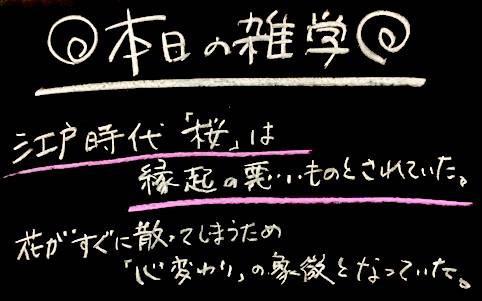 本日の雑学
江戸時代「桜」は
縁起の悪いものとされていた。
花がすぐに散ってしまうため
「心変わり」の象徴となっていた。